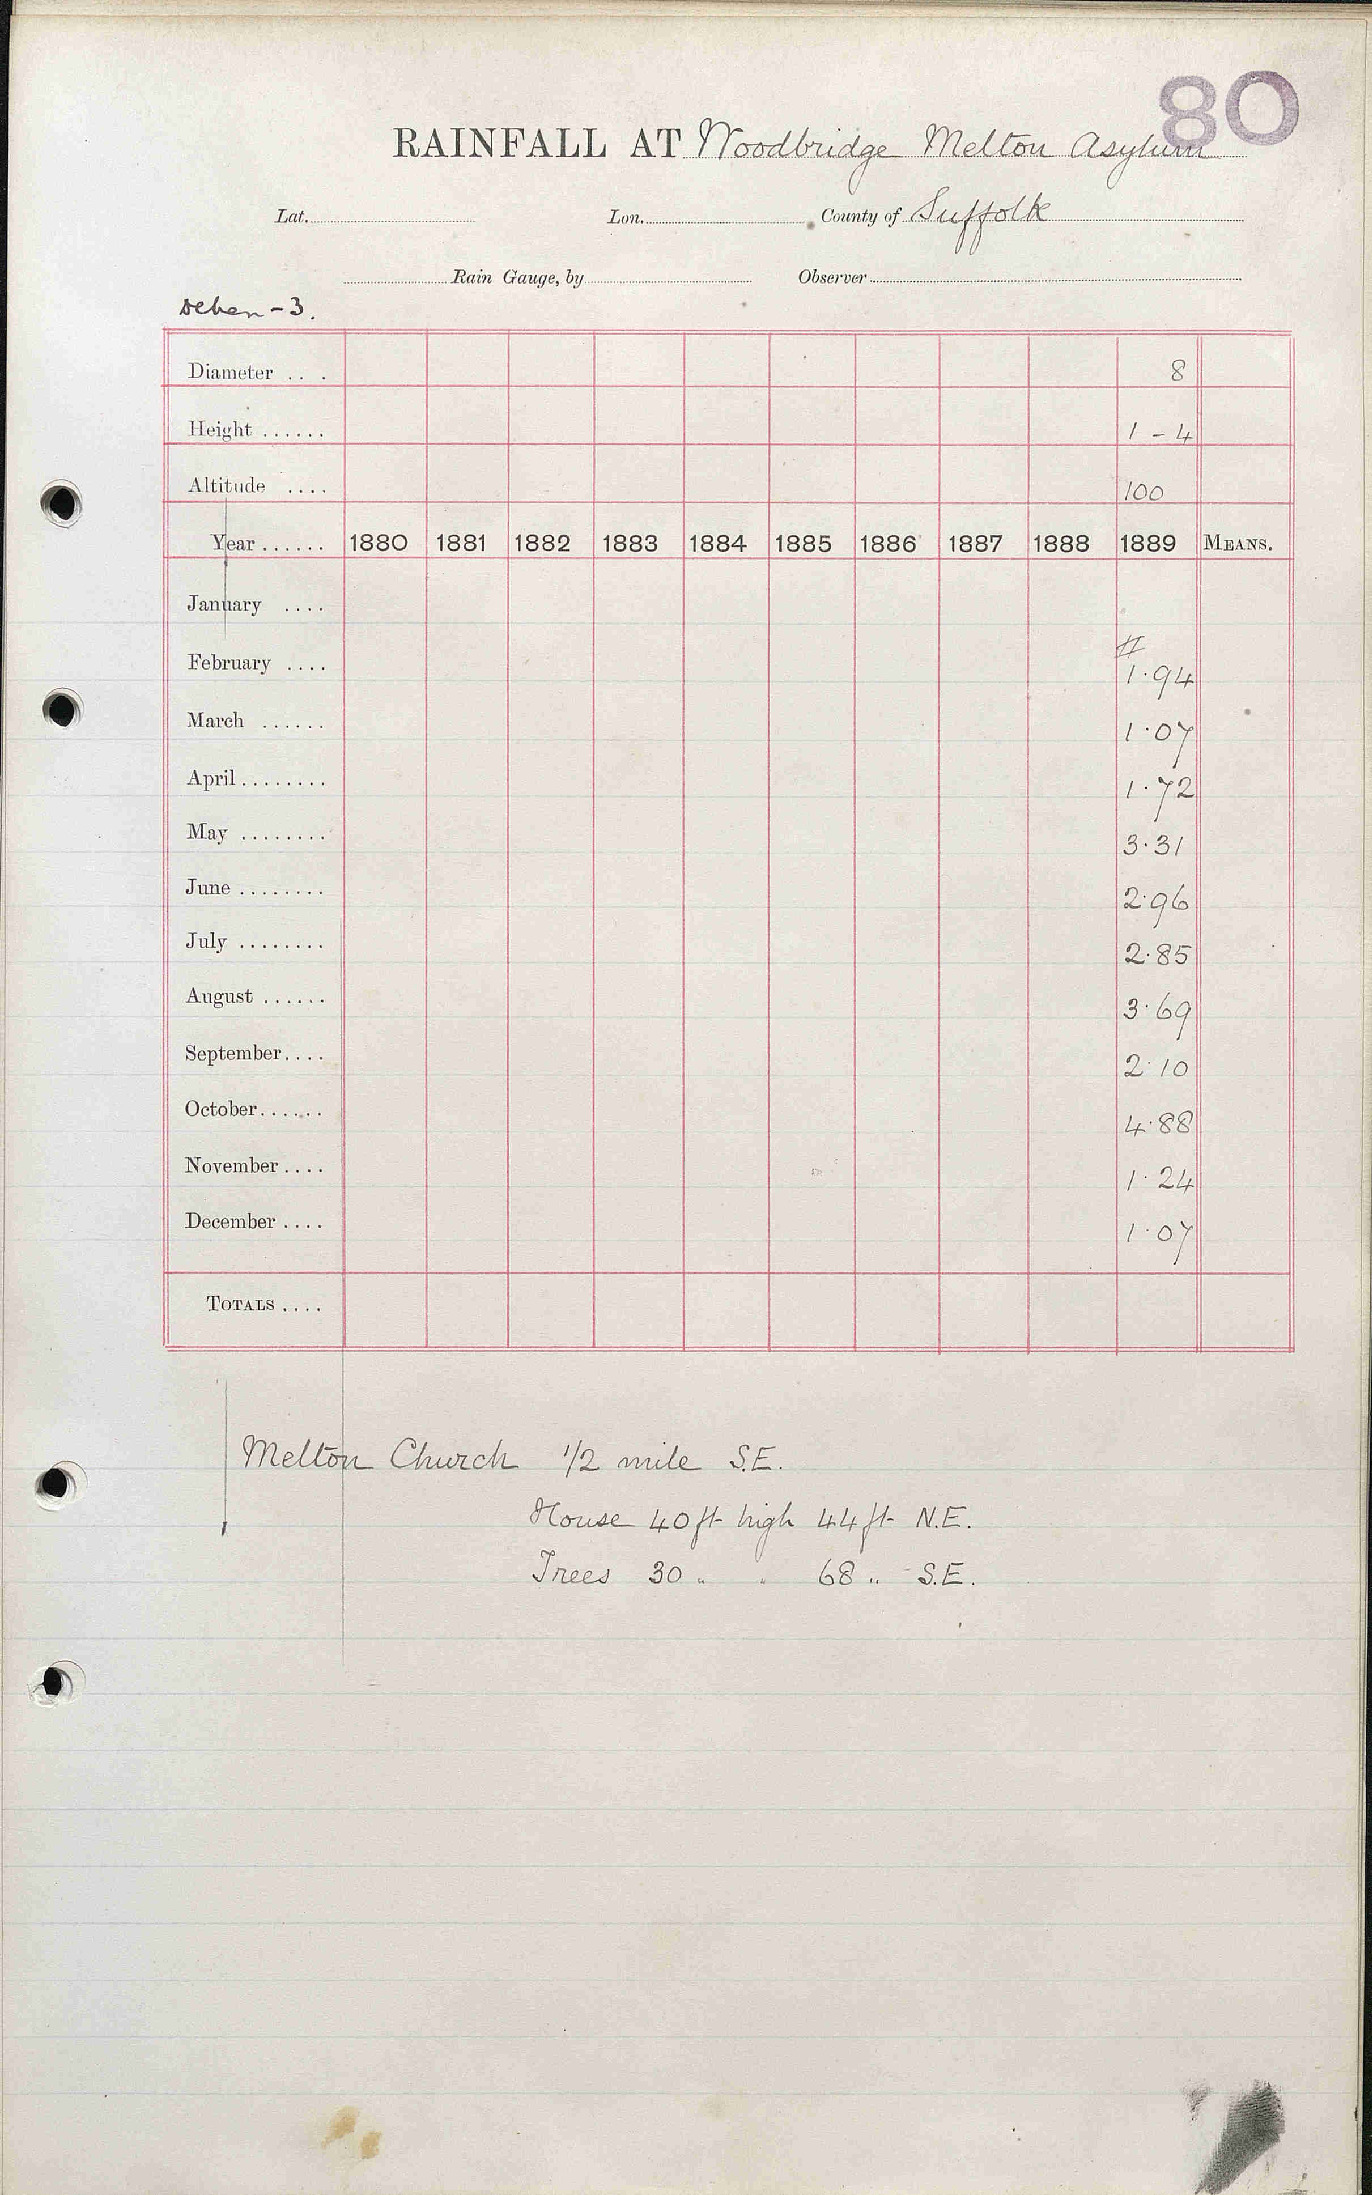 80
RAINFALL AT Woodbridge Melton Asylum
Lat. Lon. County of Suffolk
Rain Gauge, by Observer
Deben - 3.
Diameter . . . 8
Height ...... 1 - 4
Altitude .... 100
Year ...... 1880 1881 1882 1883 1884 1885 1886 1887 1888 1889 MEANS.
January ....
February .... # 1.94
March ...... 1.07
April ........ 1.72
May ........ 3.31
June ........ 2.96
July ........ 2.85
August ...... 3.69
September.... 2.10
October...... 4.88
November.... 1.24
December .... 1.07
TOTALS ....
Melton Church 1/2 mile S.E.
House 40 ft high 44 ft N.E.
Trees 30 " " 68 " S.E.